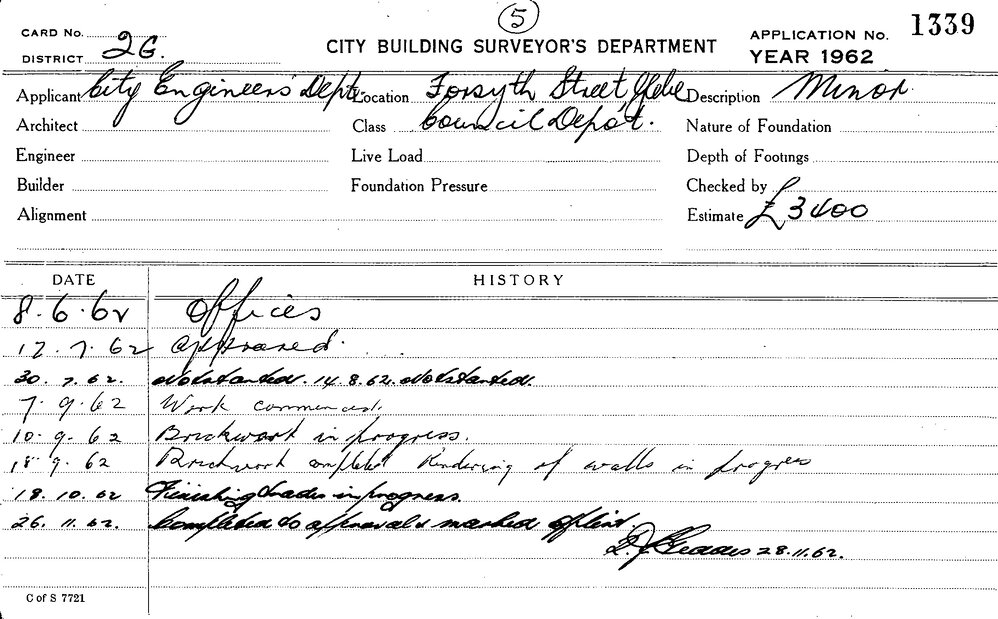 5
CARD No.
DISTRICT 2G.
CITY BUILDING SURVEYOR'S DEPARTMENT
APPLICATION No. 1339
YEAR 1962
Applicant City Engineers' Dept. Location Forsyth Street Glebe Description Minor.
Architect Class Council Depôt. Nature of Foundation
Engineer Live Load Depth of Footings
Builder Foundation Pressure Checked by
Alignment Estimate £3400
DATE HISTORY
8.6.62 Offices
12.7.62 approved.
30.7.62. Not started. 14.8.62. Not started.
7.9.62 Work commenced.
10.9.62 Brickwork in progress.
18.9.62 Brickwork completed Rendering of walls in progress
18.10.62 Finishing trades in progress.
26.11.62. Completed to approval & marked off list.
28.11.62.
C of S 7721